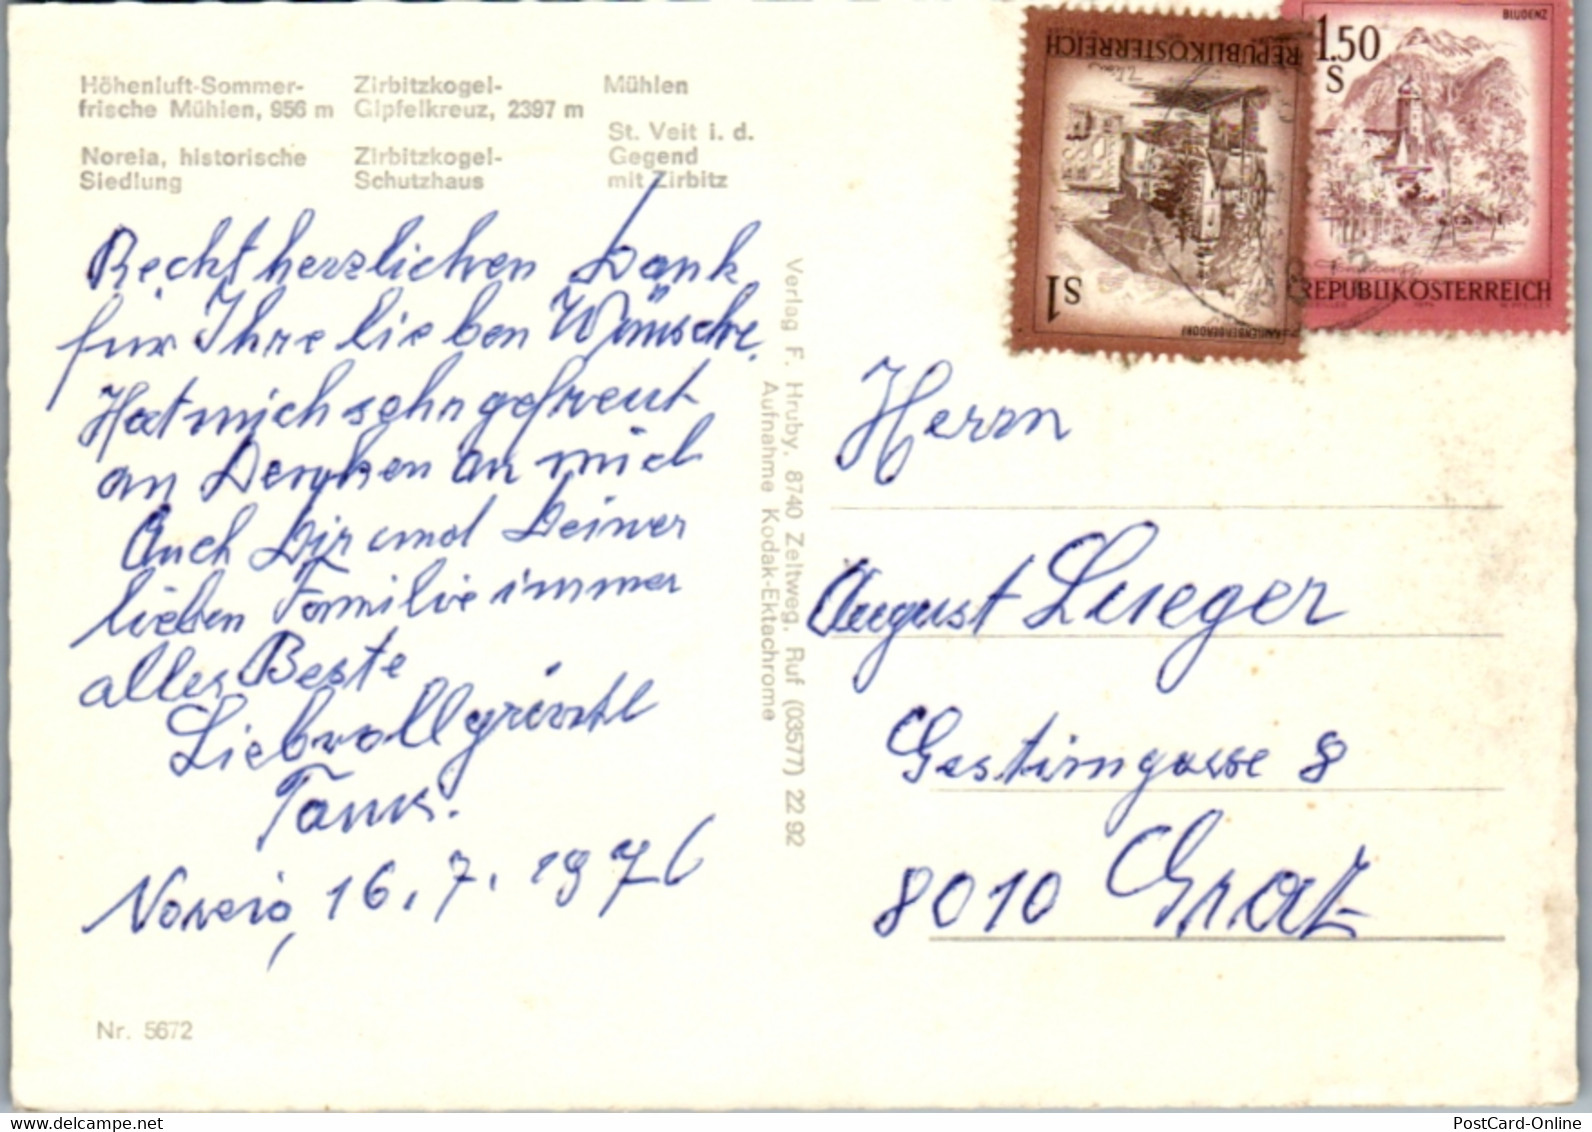 Höhenluft-Sommer-
frische Mühlen, 956 m
Zirbitzkogel-
Gipfelkreuz, 2397 m
Mühlen
Noreia, historische
Siedlung
Zirbitzkogel-
Schutzhaus
St. Veit i. d.
Gegend
mit Zirbitz
Recht herzlichen Dank
für Ihre lieben Wünsche.
Hat mich sehr gefreut
an Denken an mich
Auch Dir und Deiner
lieben Familie immer
alles Beste
Liebvoll grüsst
Noreia, 16. 7. 1976
Nr. 5672
Verlag F. Hruby, 8740 Zeltweg, Ruf (03577) 22 92
Aufnahme Kodak-Ektachrome
REPUBLIK ÖSTERREICH
S1
1.50
S
BLUDENZ
REPUBLIK ÖSTERREICH
Herrn
August Lueger
Gestirngasse 8
8010 Graz
PostCard-Online